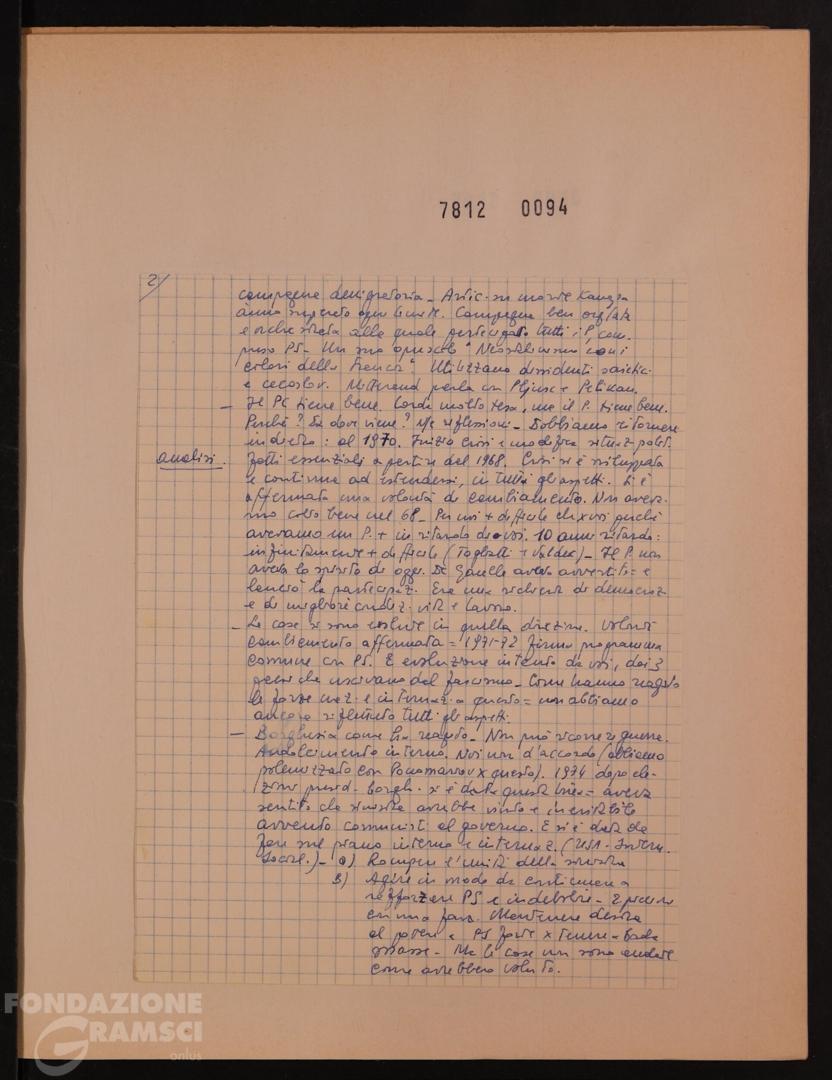 7812 0094
2/
campagna denigratoria - Artic. su morte Kanapa
hanno superato ogni limite. Campagna ben org/ata
e orchestrata alla quale partecipano tutti i P, com
preso PS. Un suo opuscolo "Neostalinismo con i
colori della Francia". Utilizzano dissidenti sovietici
e cecoslov. Mitterand parla con Pljusc e Pelikan.
- Il PC tiene bene. Corda molto tesa, ma il P. tiene bene.
Perché? Da dove viene? Ns riflessioni - Dobbiamo ritornare
indietro: al 1970. Inizio crisi e modifica situaz. polit.
analisi. Fatti essenziali a partire dal 1968. Crisi si è sviluppata
e continua ad estendersi, in tutti gli aspetti. Si è
affermata una volontà di cambiamento. Non aveva-
mo colto bene nel 68 - Per noi + difficile che x voi perché
avevamo un P. + in ritardo di voi. 10 anni ritardo:
infinitamente + difficile (Togliatti + Waldeck) - Il P. non
aveva lo spirito di oggi. De Gaulle aveva avvertito = e
lanciò la partecipaz. Era una richiesta di democraz.
e di migliori condiz. vita e lavoro.
- Le cose si sono evolute in quella direzione. Volontà
cambiamento affermata = 1971-72 firma programma
comune con PS. E evoluzione intanto da voi, dai 3
paesi che uscivano dal fascismo - Come hanno reagito
le forze naz. e internaz. a questo = non abbiamo
ancora riflettuto tutti gli aspetti.
- Borghesia come ha reagito - Non può ricorrere guerra.
Addolcimento interno. Noi non d'accordo (abbiamo
polemizzato con Ponomariov x questo). 1974 dopo ele-
zioni presid - Borgh. si è data questa linea = aveva
sentito che sinistra avrebbe vinto e inevitabile
avvento comunisti al governo. E si è data da
fare sul piano interno e internaz. (USA - Intern.
Social.) - a) Rompere l'unità della sinistra
B) Agire in modo da continuare a
rafforzare PS e indebolire - 2 piccioni
con una fava. Mantenere destra
al potere e PS forte x tenere a bada
masse - Ma le cose non sono andate
come avrebbero voluto.
FONDAZIONE
GRAMSCI
onlus